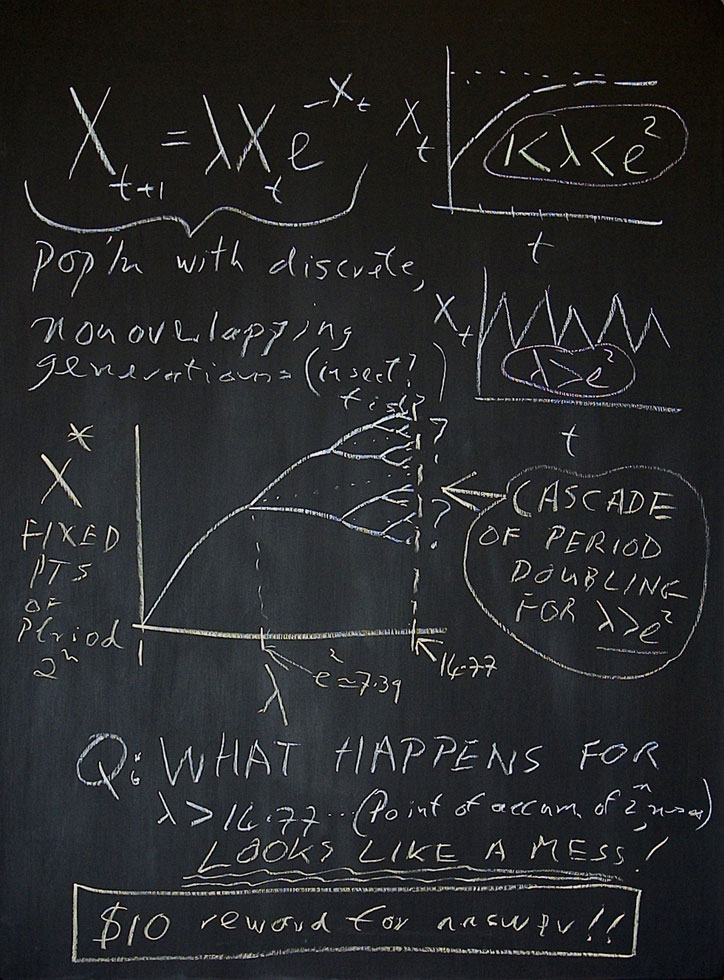 X_{t+1} = λX_t e^{-X_t}
X_t
1<λ<e²
t
Pop'n with discrete,
nonoverlapping
generations (insect?
fish?)
X_t
λ>e²
t
X*
FIXED
PTS
OF
Period
2ⁿ
?
?
1
λ
e²≈7.39
14.77
CASCADE
OF PERIOD
DOUBLING
FOR λ>e²
Q: WHAT HAPPENS FOR
λ>14.77... (Point of accum. of 2ⁿ, n→∞)
LOOKS LIKE A MESS!
$10 reward for answer!!